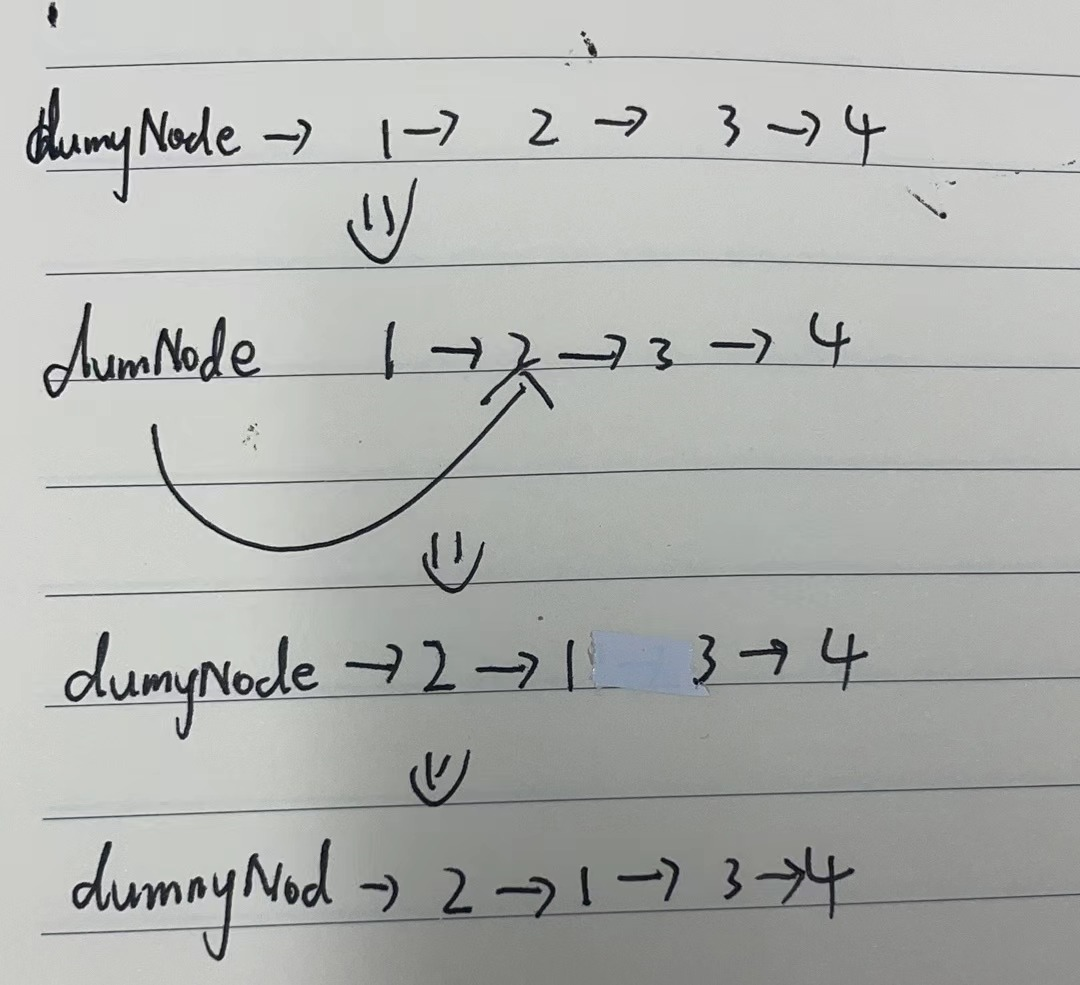 dumyNode → 1 → 2 → 3 → 4
dumNode 1 → 2 → 3 → 4
dumyNode → 2 → 1 3 → 4
dumnyNod → 2 → 1 → 3 → 4